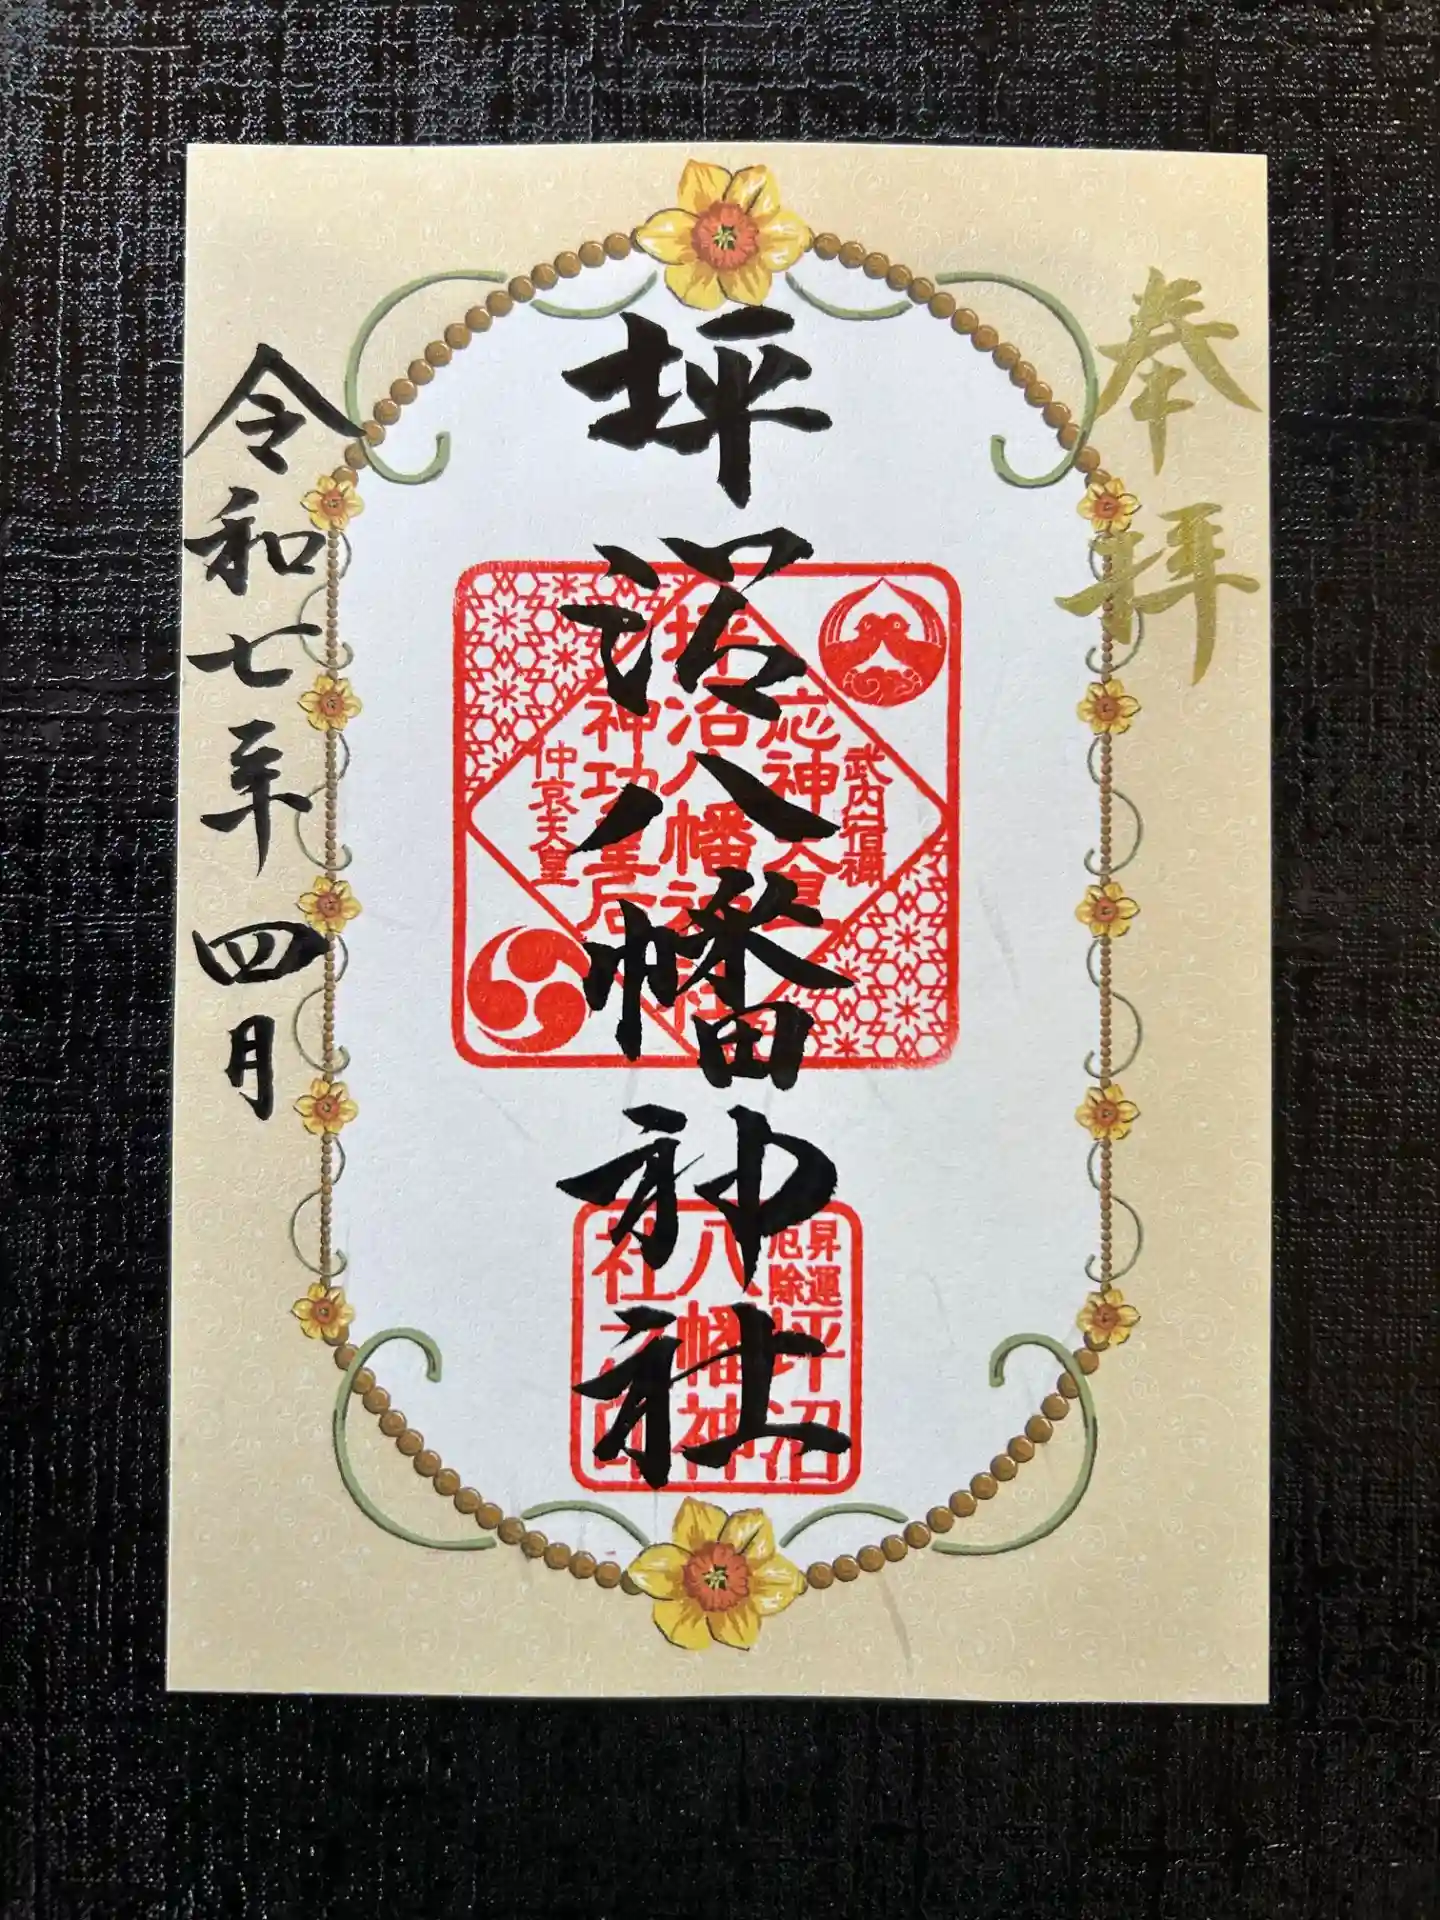 奉拝
坪沼八幡神社
令和七年四月
武内宿禰
応神天皇
坪沼八幡神社
神功皇后
仲哀天皇
昇運
厄除
坪沼
八幡神
社之印